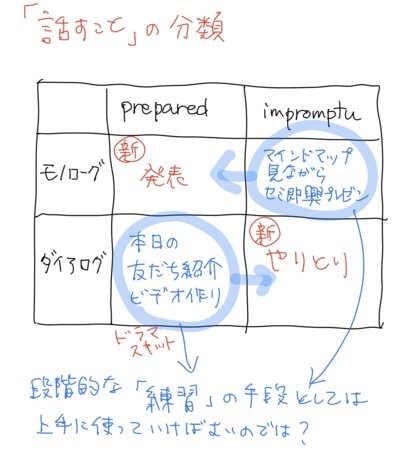 「話すこと」の分類
prepared
impromptu
モノローグ
新
発表
マインドマップ
見ながら
セミ即興プレゼン
ダイアログ
本日の
友だち紹介
ビデオ作り
新
やりとり
ドラマ
スキット
段階的な「練習」の手段としては
上手に使っていけばよいのでは?